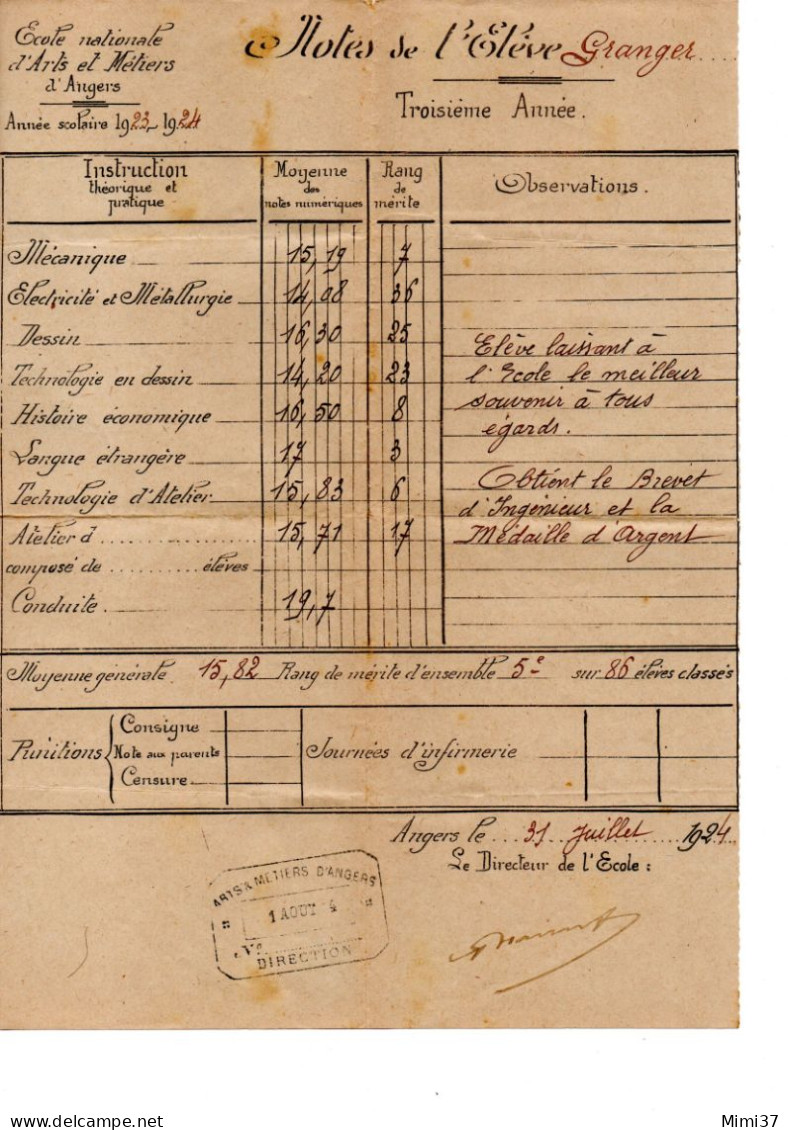 Ecole nationale
d'Arts et Métiers
d'Angers
Année scolaire 1923-1924
Notes de l'Elève Granger
Troisième Année.
Instruction
théorique et
pratique
Moyenne
des
notes numériques
Rang
de
mérite
Observations.
Mécanique 15,19 7
Electricité et Métallurgie 14,08 36
Dessin 16,30 25
Technologie en dessin 14,20 23
Histoire économique 16,50 8
Langue étrangère 17 3
Technologie d'Atelier 15,83 6
Atelier d 15,71 17
composé de élèves
Conduite 19,7
Elève laissant à
l'Ecole le meilleur
souvenir à tous
égards.
Obtient le Brevet
d'Ingénieur et la
Médaille d'Argent
Moyenne générale 15,82 Rang de mérite d'ensemble 5e sur 86 élèves classés
Punitions
Consigne
Note aux parents
Censure
Journées d'infirmerie
Angers le 31 Juillet 1924
Le Directeur de l'Ecole :
ARTS & METIERS D'ANGERS
1 AOUT 4
No
DIRECTION
Mimi37